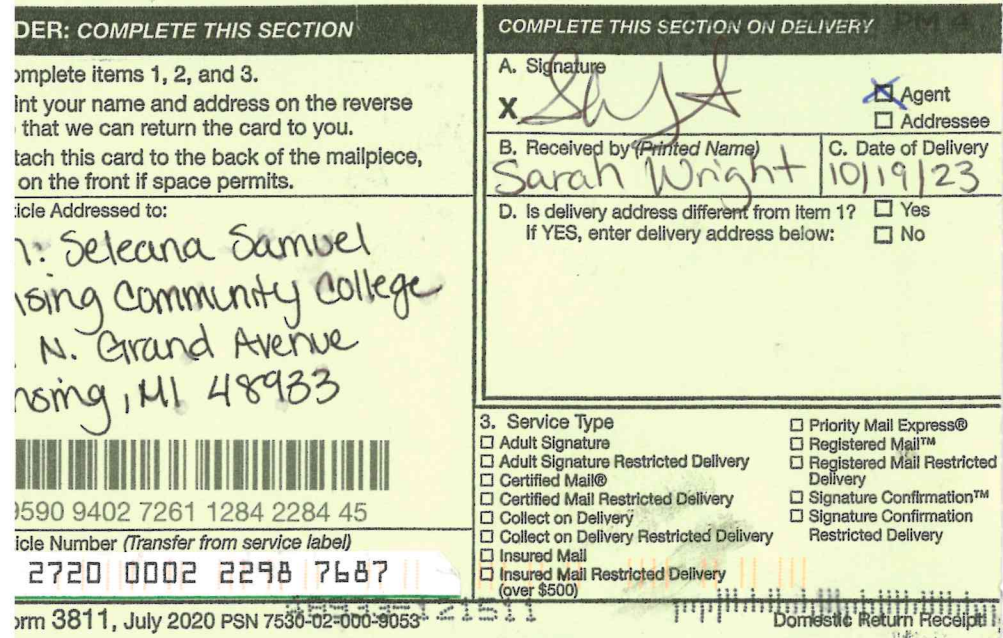 DER: COMPLETE THIS SECTION
omplete items 1, 2, and 3.
int your name and address on the reverse
that we can return the card to you.
tach this card to the back of the mailpiece,
on the front if space permits.
icle Addressed to:
n: Seleana Samuel
nsing Community College
N. Grand Avenue
nsing, MI 48933
9590 9402 7261 1284 2284 45
icle Number (Transfer from service label)
2720 0002 2298 7687
orm 3811, July 2020 PSN 7530-02-000-9053
COMPLETE THIS SECTION ON DELIVERY
PM 4
A. Signature
X
☒ Agent
☐ Addressee
B. Received by (Printed Name)
Sarah Wright
C. Date of Delivery
10/19/23
D. Is delivery address different from item 1? ☐ Yes
If YES, enter delivery address below: ☐ No
3. Service Type
☐ Adult Signature
☐ Adult Signature Restricted Delivery
☐ Certified Mail®
☐ Certified Mail Restricted Delivery
☐ Collect on Delivery
☐ Collect on Delivery Restricted Delivery
☐ Insured Mail
☐ Insured Mail Restricted Delivery
(over $500)
☐ Priority Mail Express®
☐ Registered Mail™
☐ Registered Mail Restricted
Delivery
☐ Signature Confirmation™
☐ Signature Confirmation
Restricted Delivery
Domestic Return Receipt